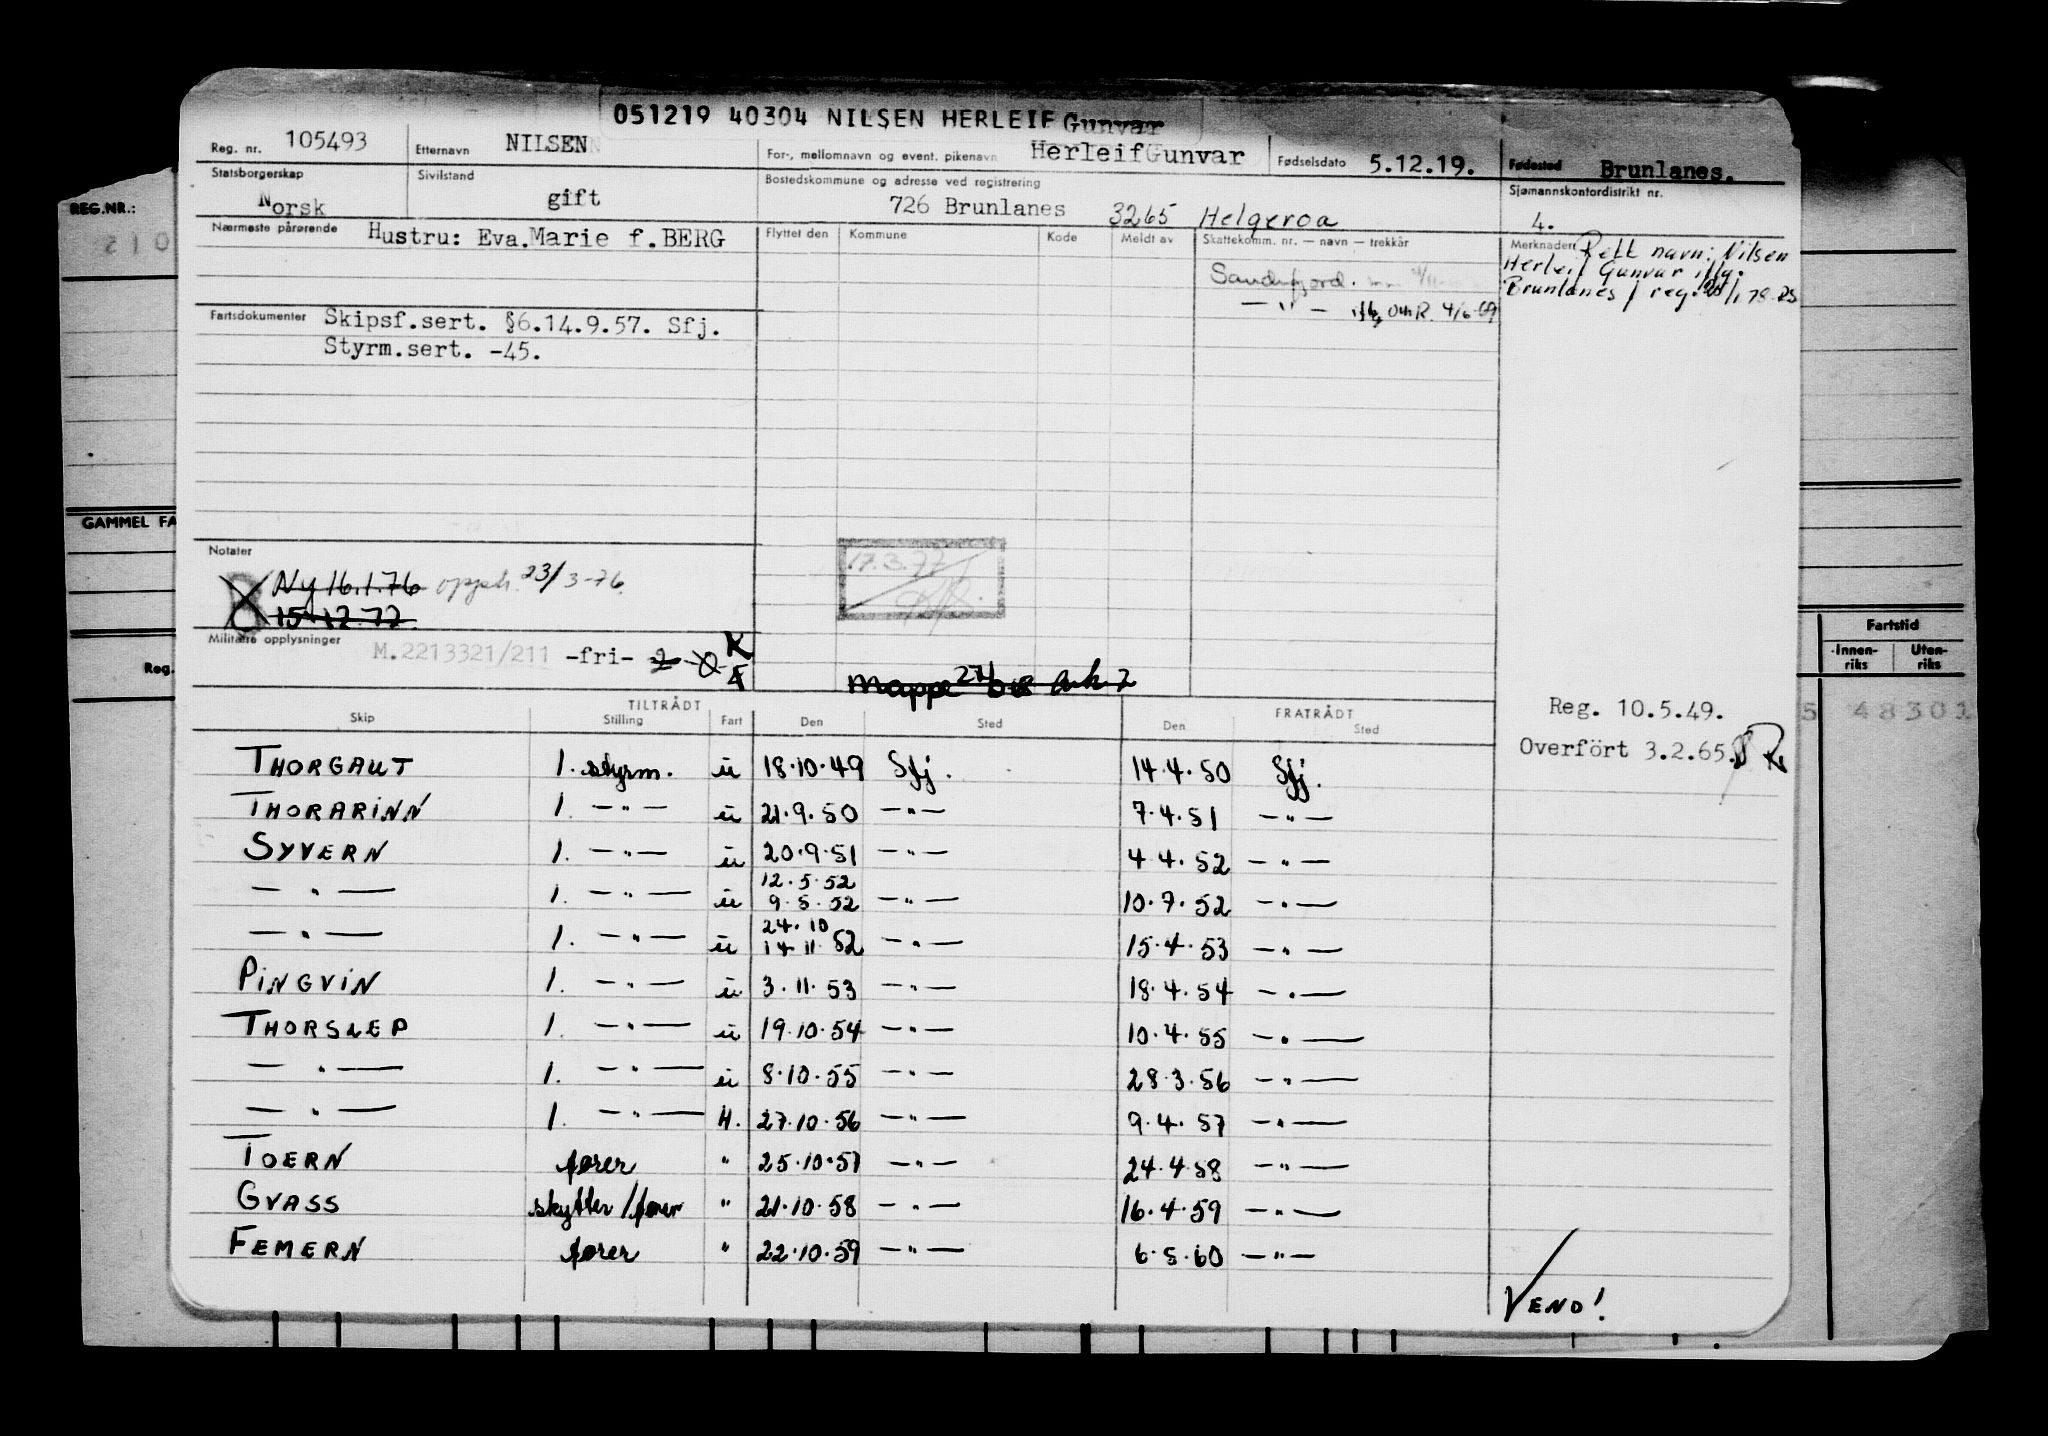 051219 40304 NILSEN HERLEIF Gunvar
Reg. nr. 105493 Etternavn NILSEN For-, mellomnavn og event. pikenavn HerleifGunvar Fødselsdato 5.12.19. Fødested Brunlanes.
Statsborgerskap Norsk Sivilstand gift Bostedskommune og adresse ved registrering 726 Brunlanes 3265 Helgeroa Sjømannskontordistrikt nr. 4.
Nærmeste pårørende Hustru: Eva.Marie f.BERG Flyttet den Kommune Kode Meldt av Skattekomm. nr. — navn — trekkår Merknader Rett navn: Nilsen
Herleif Gunvar iflg.
Brunlanes f reg.
Sandefjord.
— " —
Fartsdokumenter Skipsf.sert. §6.14.9.57. Sfj.
Styrm.sert. -45.
Notater
Ny 16.1.76 opph. 23/3-76.
15-12.72.
17.3.77
Militære opplysninger M.2213321/211 -fri- 2 K
Mappe
TILTRÅDT FRATRÅDT
Skip Stilling Fart Den Sted Den Sted
Reg. 10.5.49.
Overført 3.2.65.
THORGAUT 1. styrm. u 18.10.49 Sfj. 14.4.50 Sfj.
THORARINN 1. — " — u 21.9.50 — " — 7.4.51 — " —
SYVERN 1. — " — u 20.9.51 — " — 4.4.52 — " —
— " — 1. — " — u 12.5.52 9.5.52 — " — 10.7.52 — " —
— " — 1. — " — u 24.10 14.11.52 — " — 15.4.53 — " —
PINGVIN 1. — " — u 3.11.53 — " — 18.4.54 — " —
THORSLEP 1. — " — u 19.10.54 — " — 10.4.55 — " —
— " — 1. — " — u 8.10.55 — " — 28.3.56 — " —
— " — 1. — " — H. 27.10.56 — " — 9.4.57 — " —
TOERN fører " 25.10.57 — " — 24.4.58 — " —
GVASS skytter/fører " 21.10.58 — " — 16.4.59 — " —
FEMERN fører " 22.10.59 — " — 6.5.60 — " —
VEND!
REG.NR.:
GAMMEL FA
Reg.
Fartstid
Innen-
riks
Uten-
riks
48302